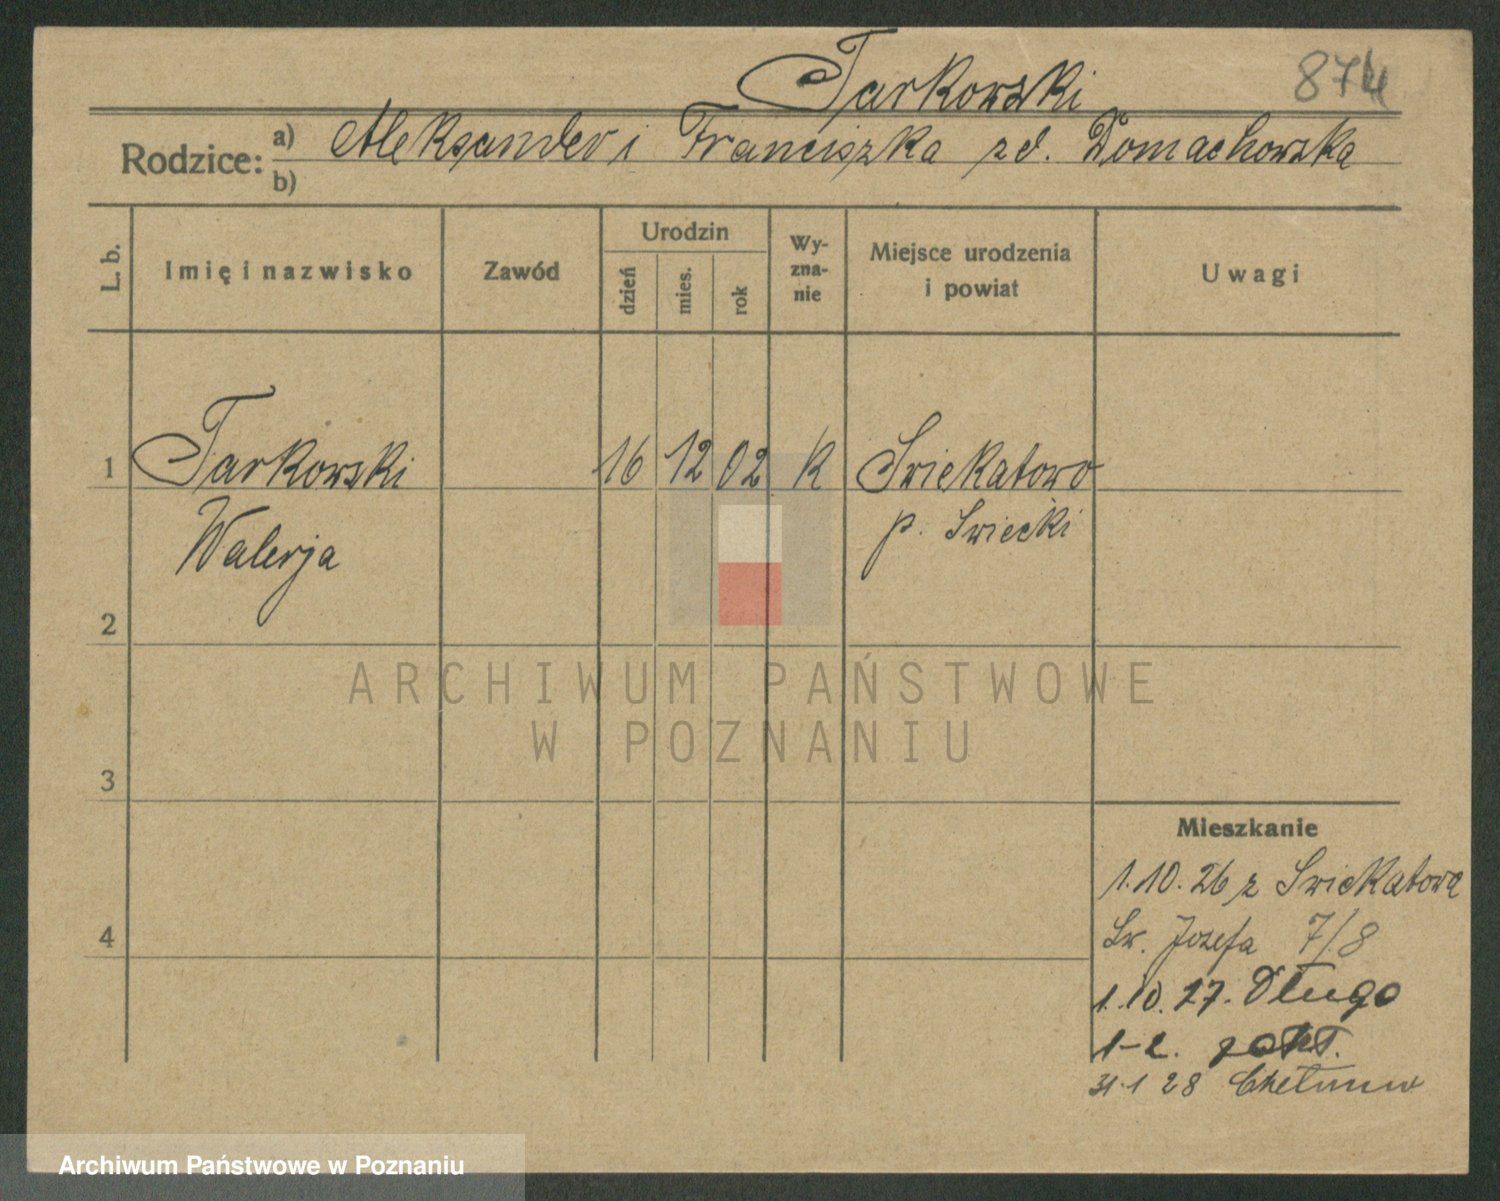 Tarkowski
874
Rodzice:
a) Aleksander i Franciszka zd. Domachowska
b)
L. b.
Imię i nazwisko
Zawód
Urodzin
dzień
mies.
rok
Wy-
zna-
nie
Miejsce urodzenia
i powiat
Uwagi
1 Tarkowski 16 12 02 K Swiekatowo
Walerja p. Swiecki
2
3
4
ARCHIWUM PAŃSTWOWE
W POZNANIU
Mieszkanie
1.10.26 z Swiekatowa
Sw. Jozefa 7/8
1.10.27. Długa
1-2.
31.1 28 Chełmno
Archiwum Państwowe w Poznaniu